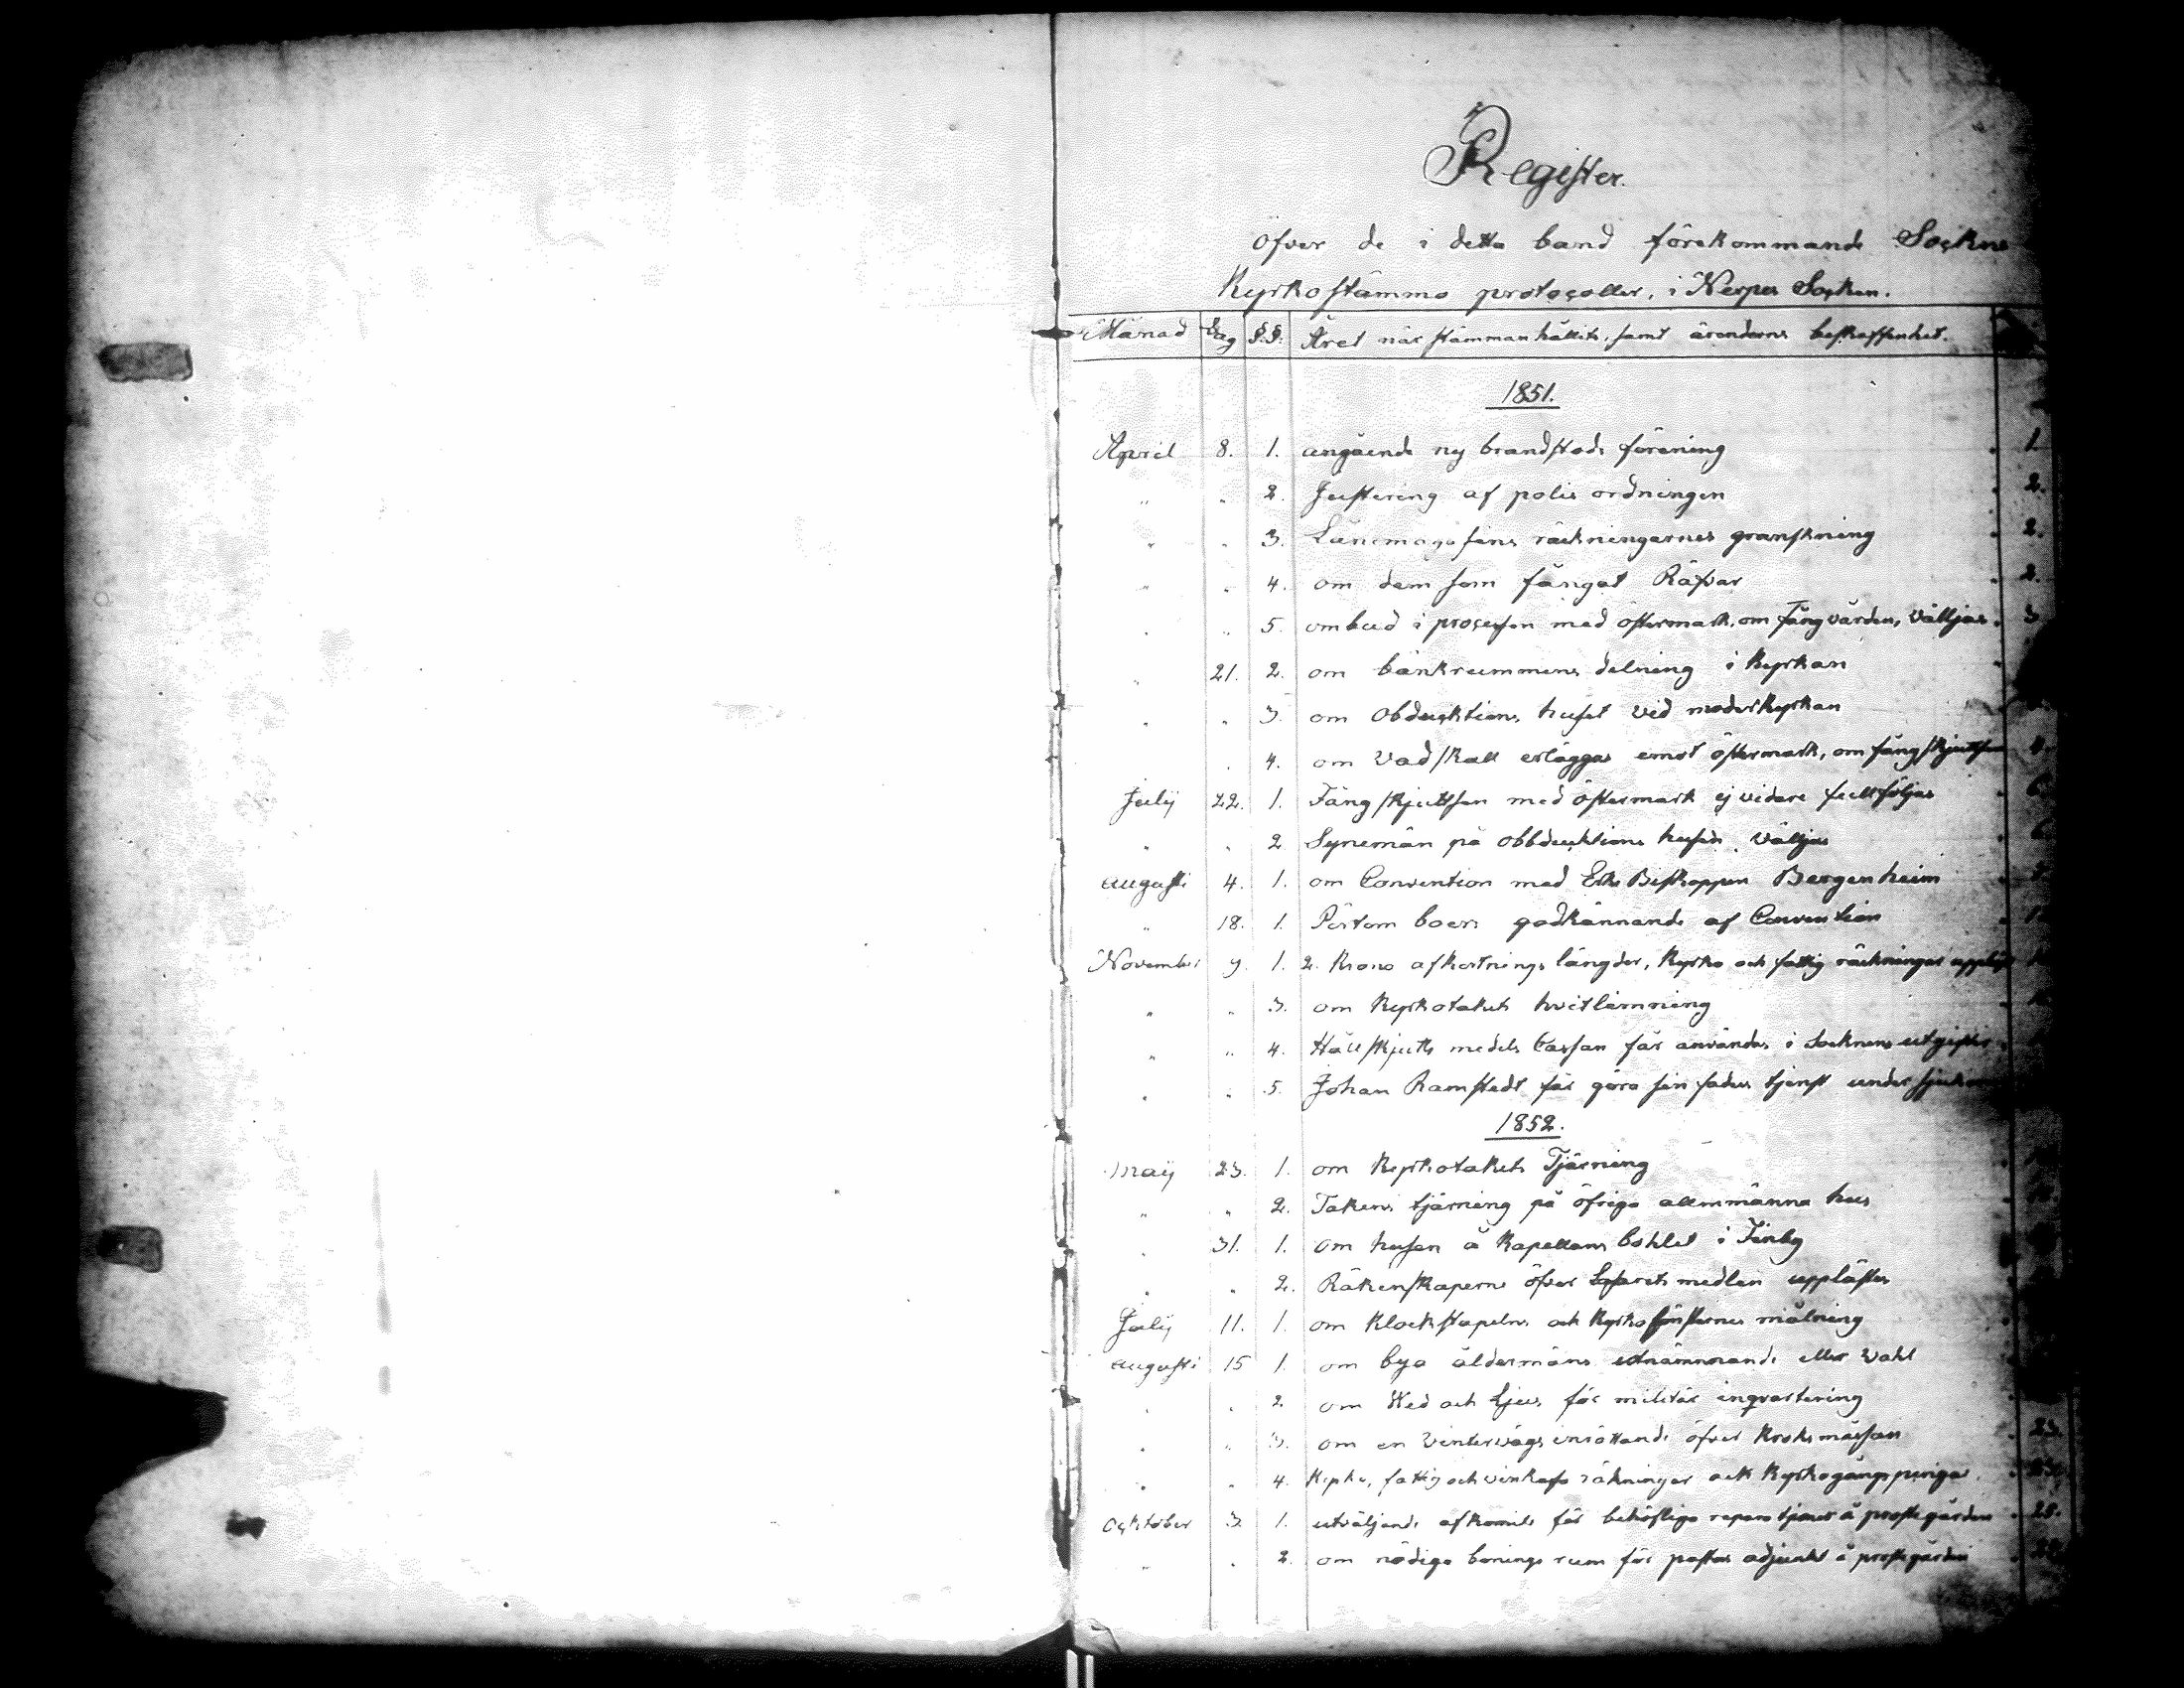 Register.
öfver de i detta band förekommande Sockne
Kyrkostämmo protocoller, i Nerpes Socken.
Månad Dag §.§. Året när stämman hållits, samt ärendernes beskaffenhet.
1851.
April 8. 1. angående ny brandstods förening 1.
" " 2. Justering af polis ordningen 2.
" " 3. Lånemagasins räckningarnes granskning 2.
" " 4. om dem som fångat Räfvar 2.
" " 5. ombud i processen med östermark, om Fångvården, välljas. 3
" 21. 2. om bänkrummens delning i Kyrkan
" " 3. om Obducktions huset vid moderkyrkan
" 4. om Vad skall erläggas emot östermark, om fångskjutsen 4.
July 22. 1. Fångskjutsen med östermark ej vidare fullföljas 6.
" " 2 Synemän på obbducktions husen välljas 6
Augusti 4. 1. om Convention med Erke Biskoppen Bergenheim
" 18. 1. Pörtom boers godkännande af Convention
November 9. 1. 2. Krono afkortnings längder, Kyrko och fattig räckningar
" " 3. om Kyrkotakets hvitlimning
" " 4. Hållskjuts medels Cassan får användas i Socknens utgifter
" " 5. Johan Ramstedt får göra sin faders tjenst under
1852.
Maij 23. 1. om Kyrkotakets Tjärning
" " 2. Takens tjärning på öfriga allmmänna hus
" 31. 1. om husen å Kapellans bohlet i Finby
" " 2. Räkenskaperne öfver medlen upplästes
July 11. 1. om Klockstapelns och Kyrkofönsternes målning
Augusti 15 1. om bya åldermäns utnämnande eller Wahl
" " 2 om Wed och Ljus för militär inqvartering
" " 3. om en vintervägs inrättande öfver Kroksmässan 23.
" " 4. fattig och räkningar och Kyrkogångspenigar
Ocktober 3. 1. utväljande af för behöfliga reparationer å prostgården 28.
" " 2. om nödiga bonings rum för pastors adjunkt å prostgården